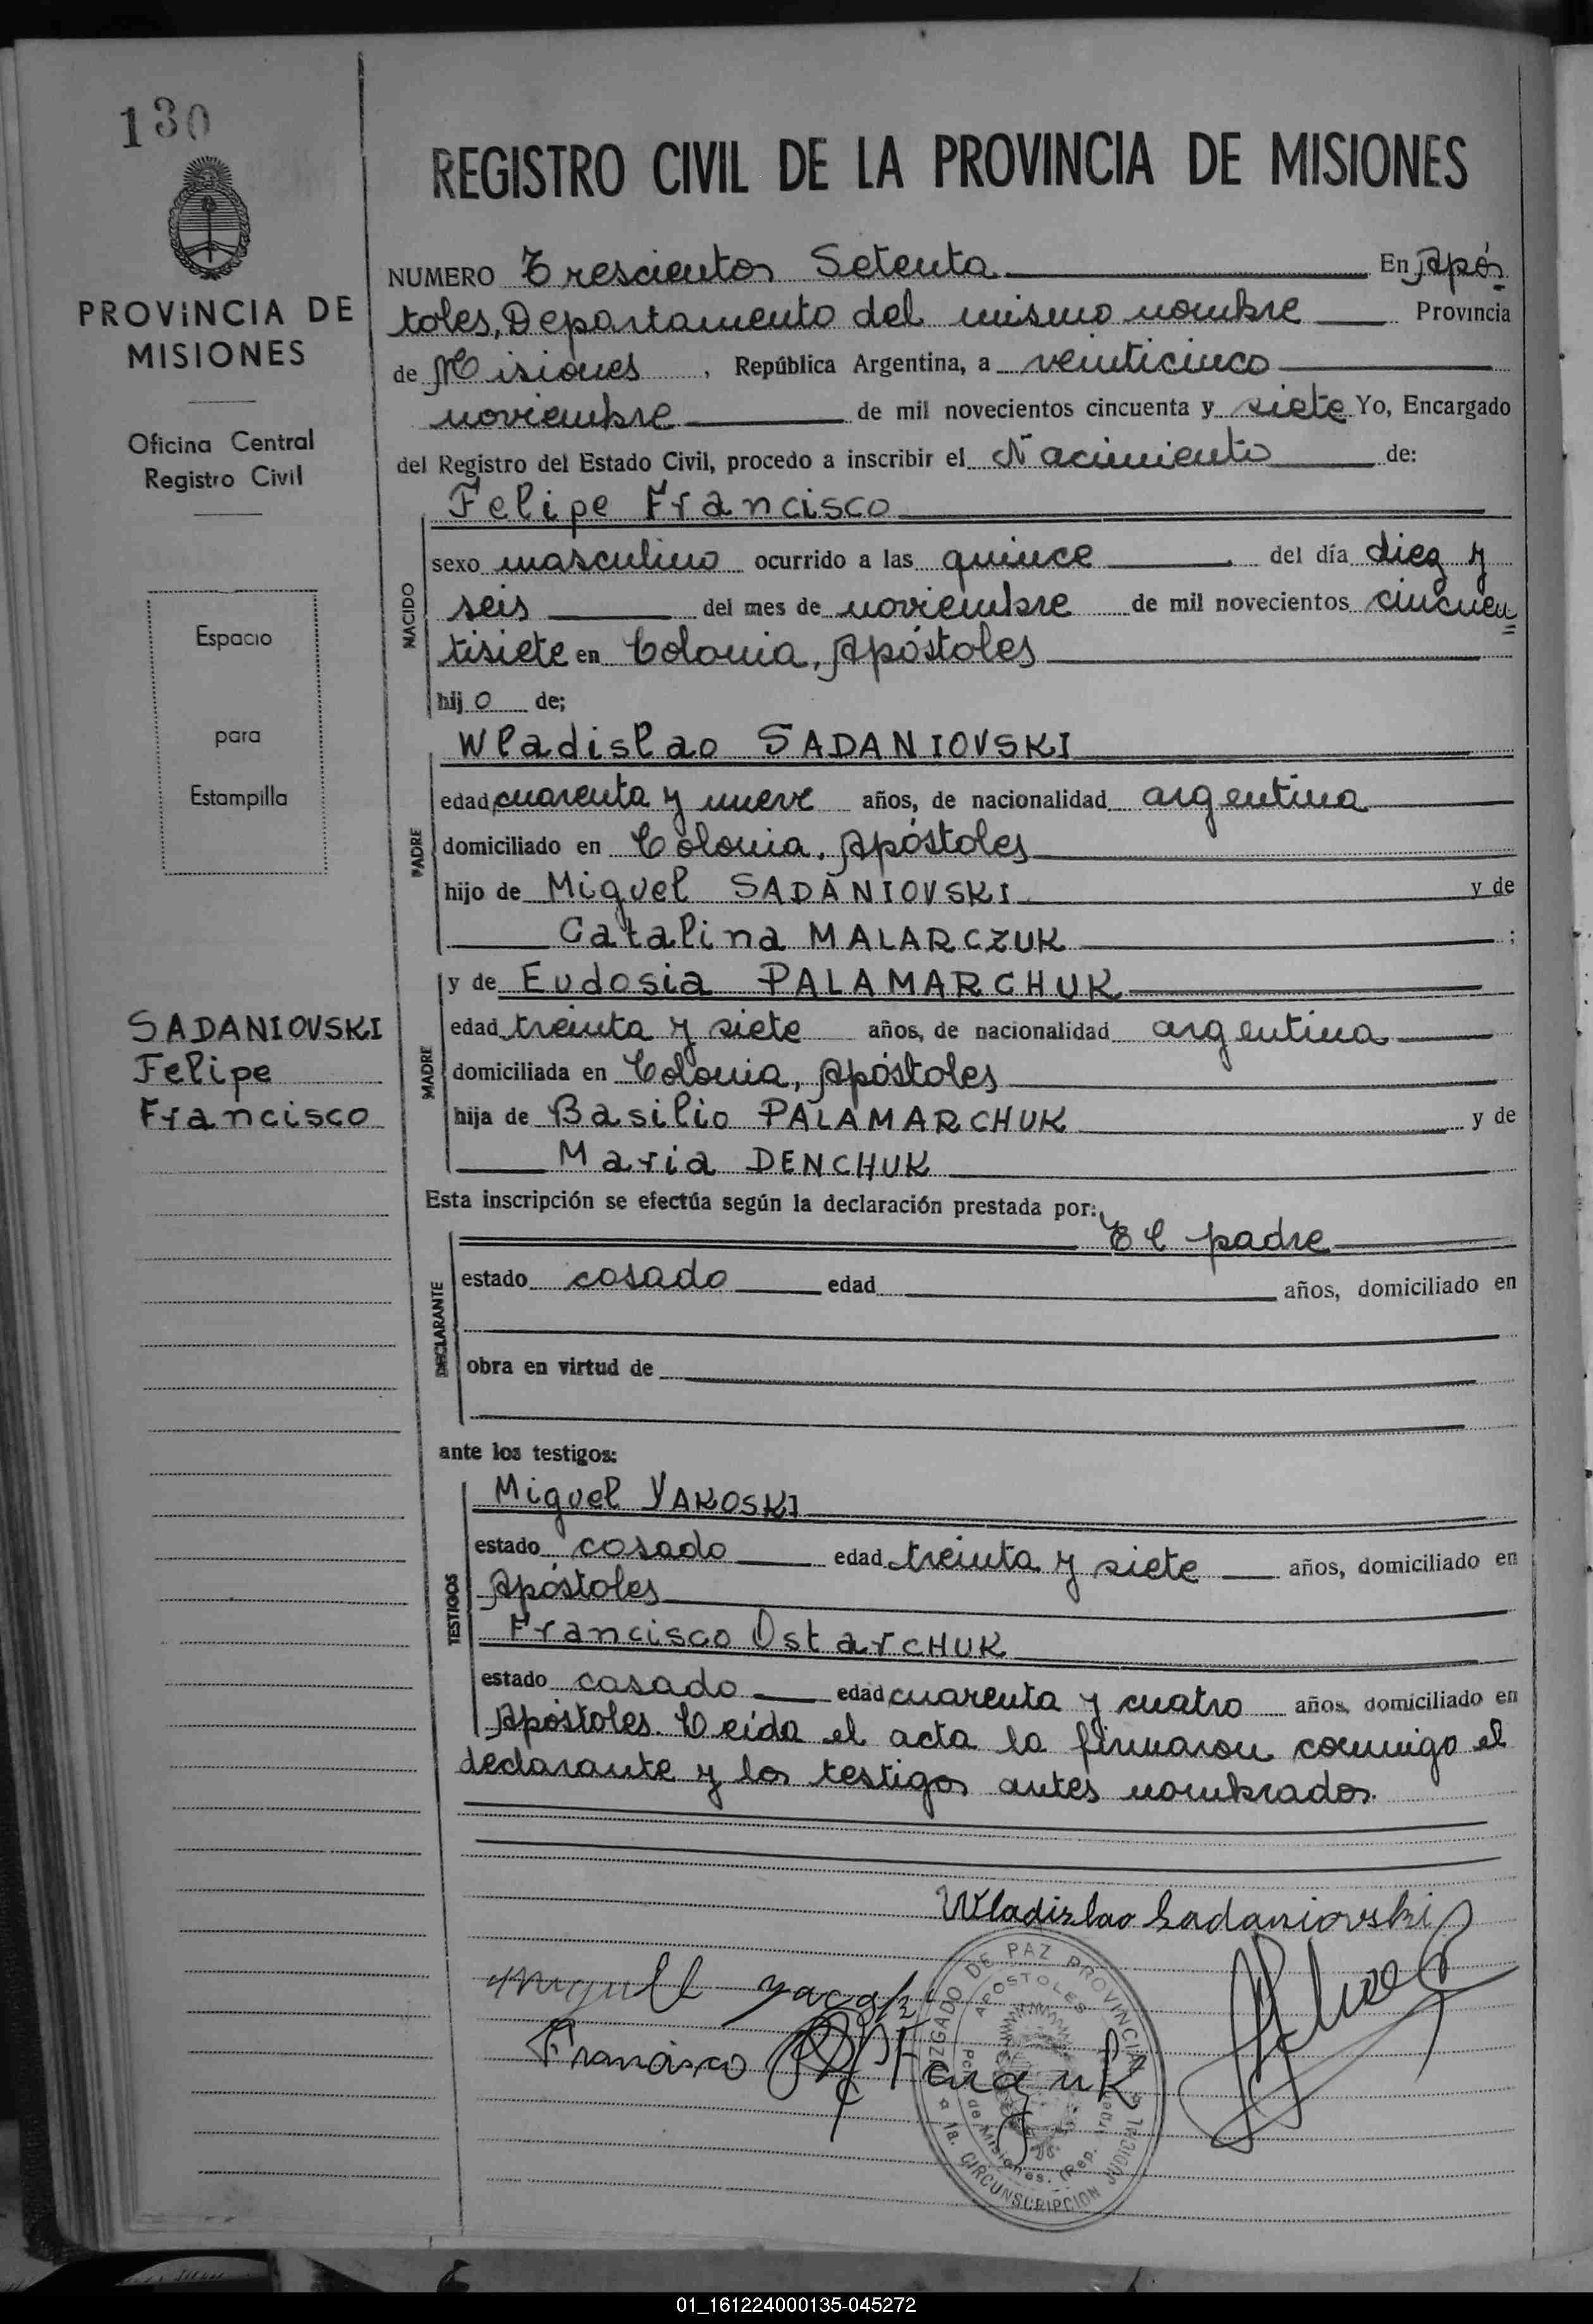 130
PROVINCIA DE
MISIONES
Oficina Central
Registro Civil
Espacio
para
Estampilla
SADANIOVSKI
Felipe
Francisco
REGISTRO CIVIL DE LA PROVINCIA DE MISIONES
NUMERO Trescientos Setenta En Após
toles, Departamento del mismo nombre Provincia
de Misiones, República Argentina, a veinticinco
noviembre de mil novecientos cincuenta y siete Yo, Encargado
del Registro del Estado Civil, procedo a inscribir el Nacimiento de:
Felipe Francisco
NACIDO
sexo masculino ocurrido a las quince del día diez y
seis del mes de noviembre de mil novecientos cincuen=
tisiete en Colonia, Apóstoles
hijo de;
Wladislao SADANIOVSKI
PADRE
edad cuarenta y nueve años, de nacionalidad argentina
domiciliado en Colonia, Apóstoles
hijo de Miguel SADANIOVSKI y de
Catalina MALARCZUK ;
y de Eudosia PALAMARCHUK
MADRE
edad treinta y siete años, de nacionalidad argentina
domiciliada en Colonia, Apóstoles
hija de Basilio PALAMARCHUK y de
Maria DENCHUK
Esta inscripción se efectúa según la declaración prestada por:
El padre
DECLARANTE
estado casado edad años, domiciliado en
obra en virtud de
ante los testigos:
Miguel YAKOSKI
TESTIGOS
estado casado edad treinta y siete años, domiciliado en
Apóstoles
Francisco OstarCHUK
estado casado edad cuarenta y cuatro años, domiciliado en
Apóstoles. Leída el acta la firmaron conmigo el
declarante y los testigos antes nombrados.
Wladizlao Sadaniovski
Francisco
JUZGADO DE PAZ PROVINCIAL
APOSTOLES
de Misiones. (Rep.
1a. CIRCUNSCRIPCION JUDICIAL
01_161224000135-045272